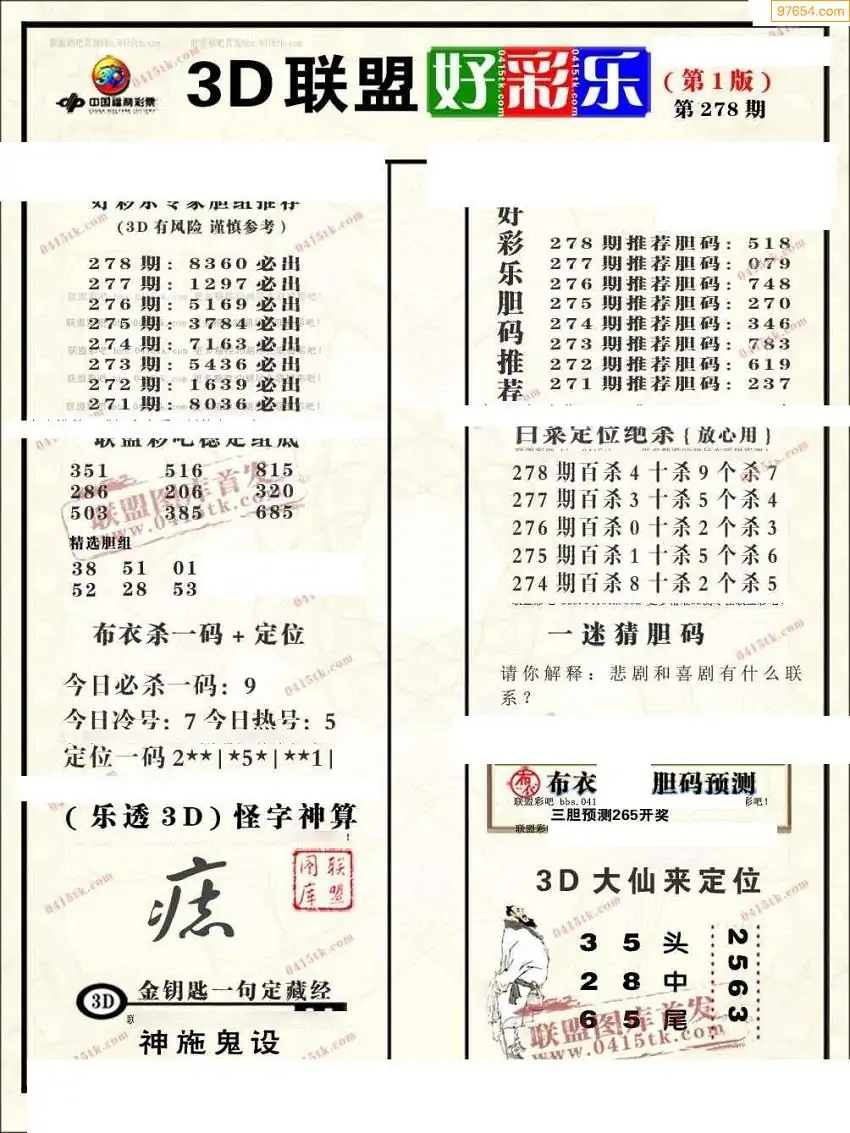 97654.com
3D联盟好彩乐
(第1版)
第278期
中国福利彩票
CHINA WELFARE LOTTERY
好彩乐专家胆组推荐
(3D有风险 谨慎参考)
278期: 8360必出
277期: 1297必出
276期: 5169必出
275期: 3784必出
274期: 7163必出
273期: 5436必出
272期: 1639必出
271期: 8036必出
联盟彩吧稳定组底
351 516 815
286 206 320
503 385 685
联盟图库首发
www.0415tk.com
精选胆组
38 51 01
52 28 53
布衣杀一码+定位
今日必杀一码: 9
今日冷号: 7 今日热号: 5
定位一码2**|*5*|**1|
(乐透3D)怪字神算
痣
联盟图库
3D 金钥匙一句定藏经
神施鬼设
好彩乐胆码推荐
278期推荐胆码: 518
277期推荐胆码: 079
276期推荐胆码: 748
275期推荐胆码: 270
274期推荐胆码: 346
273期推荐胆码: 783
272期推荐胆码: 619
271期推荐胆码: 237
白菜定位绝杀{放心用}
278期百杀4十杀9个杀7
277期百杀3十杀5个杀4
276期百杀0十杀2个杀3
275期百杀1十杀5个杀6
274期百杀8十杀2个杀5
一迷猜胆码
请你解释: 悲剧和喜剧有什么联
系?
布衣 布衣 胆码预测
联盟彩吧 bbs.041 彩吧!
三胆预测265开奖
3D大仙来定位
3 5 头
2 8 中
6 5 尾
2563
联盟图库首发
www.0415tk.com
0415tk.com